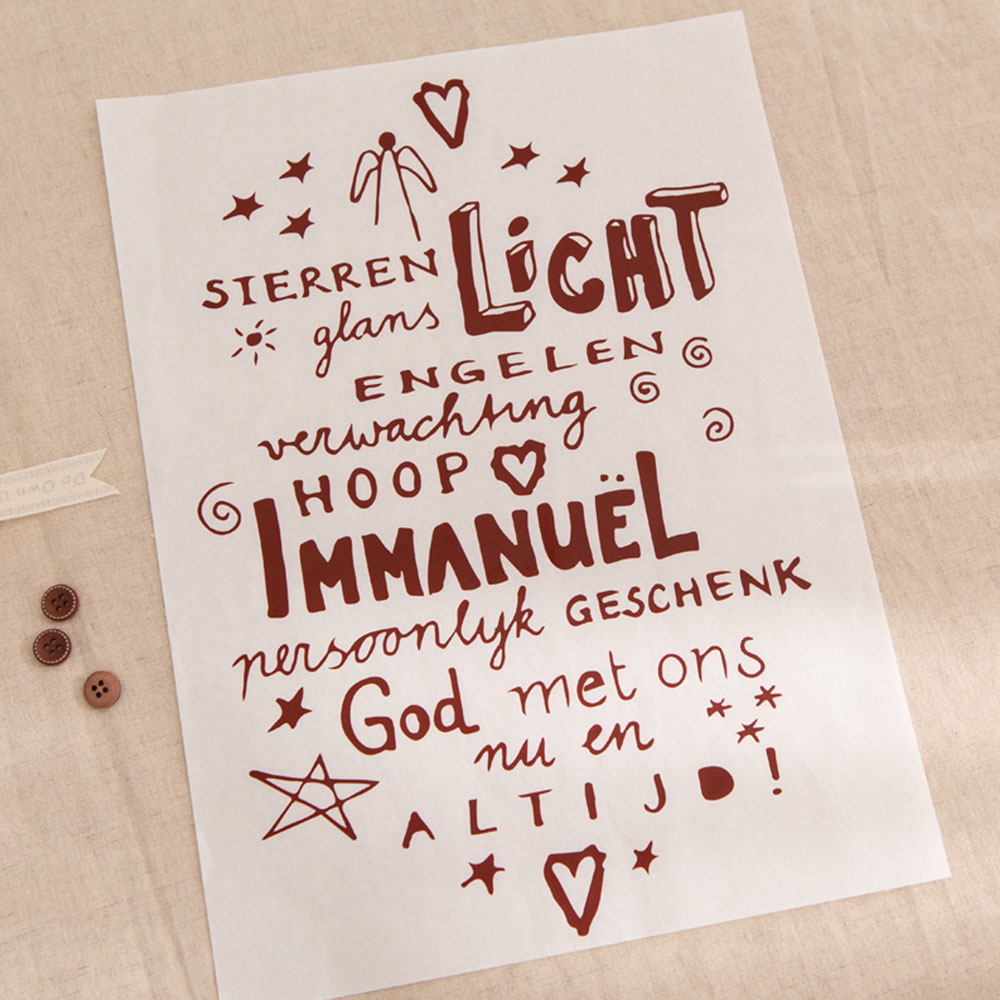 STERREN LiCHT
glans
ENGELEN
verwachting
HOOP
IMMANUËL
persoonlyk GESCHENK
God met ons
nu en
ALTIJD!
Do Own